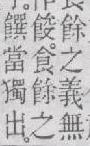 餘之義無
餕。食餘之
饌當獨出。